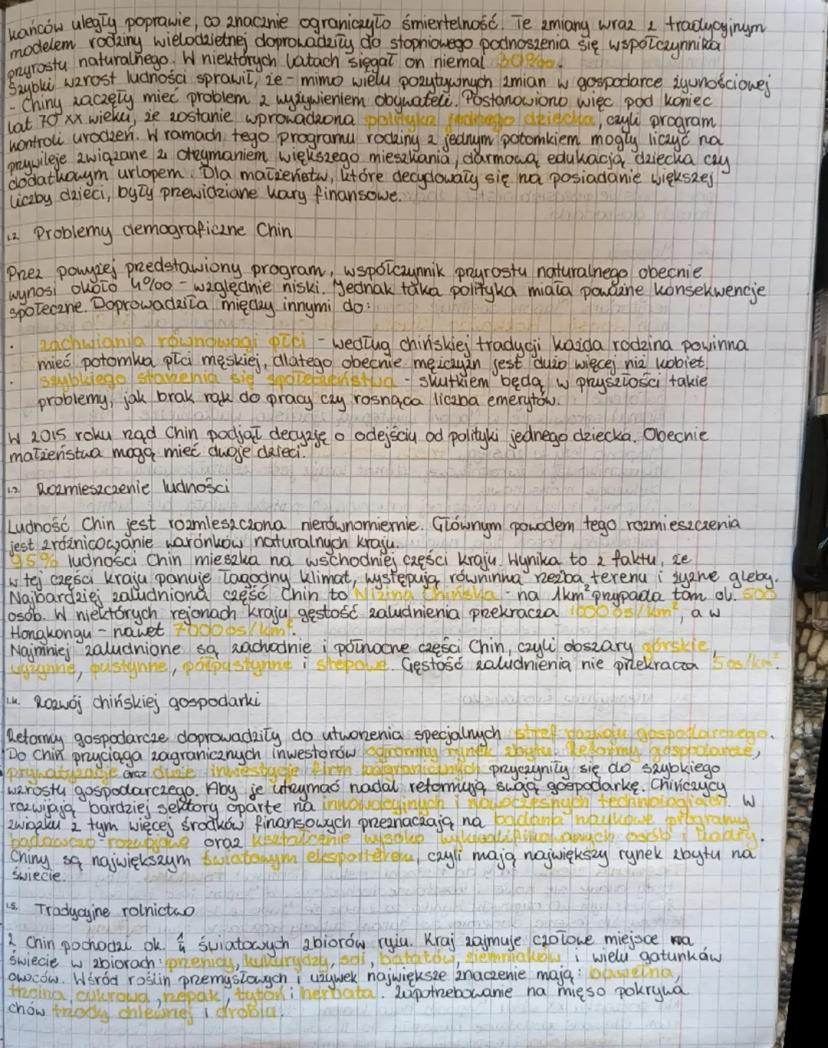 kańców uległy poprawie, co znacznie ograniczyło śmiertelność. Te zmiany wraz z tradycyjnym
modelem rodziny wielodzietnej doprowadziły do stopniowego podnoszenia się współczynnika
przyrostu naturalnego. W niektórych latach sięgał on niemal 30‰.
Szybki wzrost ludności sprawił, że - mimo wielu pozytywnych zmian w gospodarce żywnościowej
- Chiny zaczęły mieć problem z wyżywieniem obywateli. Postanowiono więc pod koniec
lat 70 XX wieku, że zostanie wprowadzona polityka jednego dziecka, czyli program
kontroli urodzeń. W ramach tego programu rodziny z jednym potomkiem mogły liczyć na
przywileje związane z otrzymaniem większego mieszkania, darmową edukacją dziecka czy
dodatkowym urlopem. Dla małżeństw, które decydowały się na posiadanie większej
liczby dzieci, były przewidziane kary finansowe.
1.2. Problemy demograficzne Chin
Przez powyżej przedstawiony program, współczynnik przyrostu naturalnego obecnie
wynosi około 4‰ - względnie niski. Jednak taka polityka miała poważne konsekwencje
społeczne. Doprowadziła między innymi do:
· zachwiania równowagi płci - według chińskiej tradycji każda rodzina powinna
mieć potomka płci męskiej, dlatego obecnie mężczyzn jest dużo więcej niż kobiet.
· szybkiego starzenia się społeczeństwa - skutkiem będą w przyszłości takie
problemy, jak brak rąk do pracy czy rosnąca liczba emerytów.
W 2015 roku rząd Chin podjął decyzję o odejściu od polityki jednego dziecka. Obecnie
małżeństwa mogą mieć dwoje dzieci.
1.3. Rozmieszczenie ludności
Ludność Chin jest rozmieszczona nierównomiernie. Głównym powodem tego rozmieszczenia
jest zróżnicowanie warónków naturalnych kraju.
95% ludności Chin mieszka na wschodniej części kraju. Wynika to z faktu, że
w tej części kraju panuje łagodny klimat, występują równinna rzeźba terenu i żyzne gleby.
Najbardziej zaludniona część Chin to Nizina Chińska - na 1km² przypada tam ok. 500
osób. W niektórych rejonach kraju gęstość zaludnienia przekracza 1000 os/km², a w
Hongkongu - nawet 7000 os/km².
Najmniej zaludnione są zachodnie i północne części Chin, czyli obszary górskie,
wyżynne, pustynne, półpustynne i stepowe. Gęstość zaludnienia nie przekracza 5 os/km².
1.4. Rozwój chińskiej gospodarki
Reformy gospodarcze doprowadziły do utworzenia specjalnych stref rozwoju gospodarczego.
Do Chin przyciąga zagranicznych inwestorów ogromny rynek zbytu. Reformy gospodarcze,
prywatyzacje oraz duże inwestycje firm zagranicznych przyczyniły się do szybkiego
wzrostu gospodarczego. Aby je utrzymać nadal reformują swoją gospodarkę. Chińczycy
rozwijają bardziej sektory oparte na innowacyjnych i nowoczesnych technologiach. W
związku z tym więcej środków finansowych przeznaczają na badania naukowe programy
badawczo-rozwojowe oraz kształcenie wysoko wykwalifikowanych osób i kadry.
Chiny są największym światowym eksporterem, czyli mają największy rynek zbytu na
świecie.
1.5. Tradycyjne rolnictwo
Z Chin pochodzi ok. światowych zbiorów ryżu. Kraj zajmuje czołowe miejsce na
świecie w zbiorach: pszenicy, kukurydzy, soi, batatów, ziemniaków i wielu gatunków
owoców. Wśród roślin przemysłowych i używek największe znaczenie mają: bawełna,
trzcina cukrowa, rzepak, tytoń i herbata. Zapotrzebowanie na mięso pokrywa
chów trzody chlewnej i drobiu.